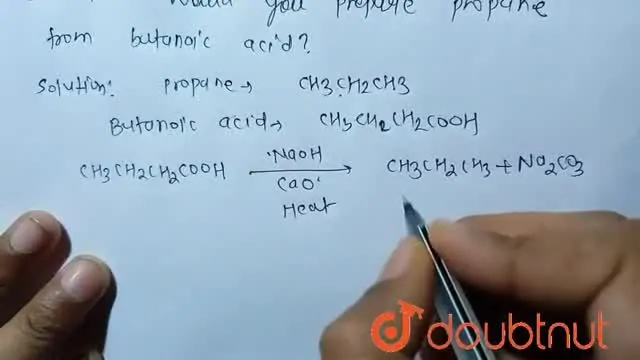 would you prepare propane
from butanoic acid?
Solution: Propane → CH3CH2CH3
Butanoic acid → CH3CH2CH2COOH
CH3CH2CH2COOH NaOH CH3CH2CH3 + Na2CO3
CaO
Heat
doubtnut